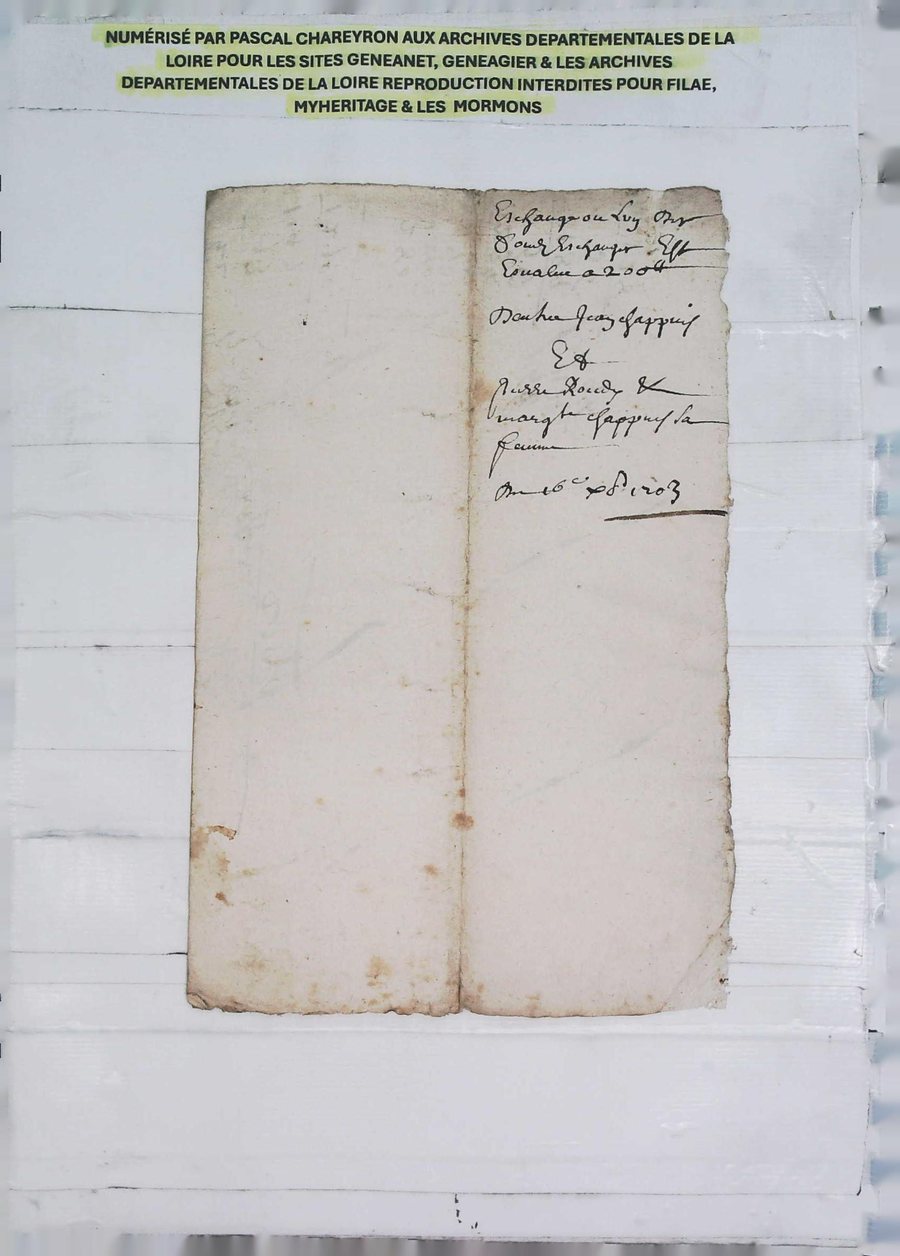 NUMÉRISÉ PAR PASCAL CHAREYRON AUX ARCHIVES DEPARTEMENTALES DE LA
LOIRE POUR LES SITES GENEANET, GENEAGIER & LES ARCHIVES
DEPARTEMENTALES DE LA LOIRE REPRODUCTION INTERDITES POUR FILAE,
MYHERITAGE & LES MORMONS
Eschange ou Luy des
fondz Eschangés Est
Eualué a 200
Dentre Jean chappuis
Et
pierre &
margte chappuis sa
femme
Du 16e xbre 1703